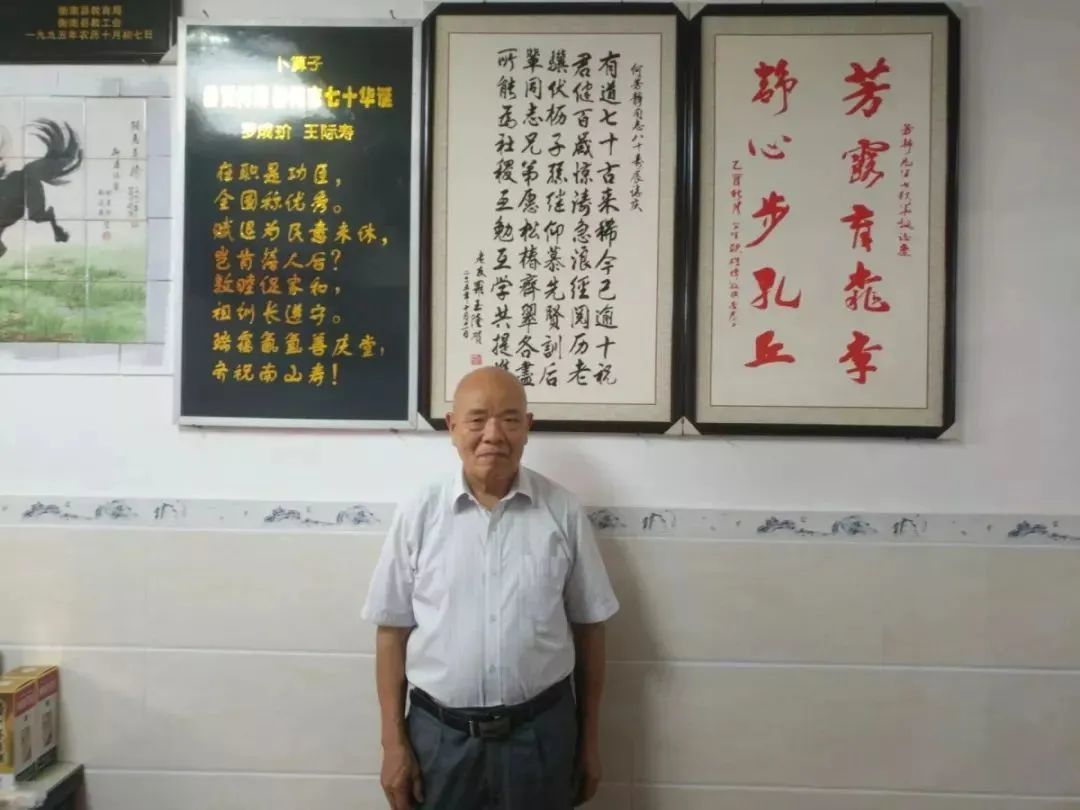 衡南县教育局
衡南县教工会
一九九五年农历十月初七日
卜算子
七十华诞
罗成玠 王际寿
在职是功臣，
全国称优秀。
赋退为民意未休，
岂肯落人后？
敦睦促家和，
祖训长遵守。
瑞霭氤氲善庆堂，
齐祝南山寿！
何芳静同志八十寿辰志庆
有道七十古来稀今已逾十祝
君健百歲惊涛急浪经阅历老
骥伏枥子孫继仰慕先贤訓后
辈同志兄弟愿松椿齊翠各盡
所能為社稷互勉互学共提
老友戴玉隆贺
芳静先生七秩华诞志慶
芳露育桃李
静心步孔丘
乙酉秋月